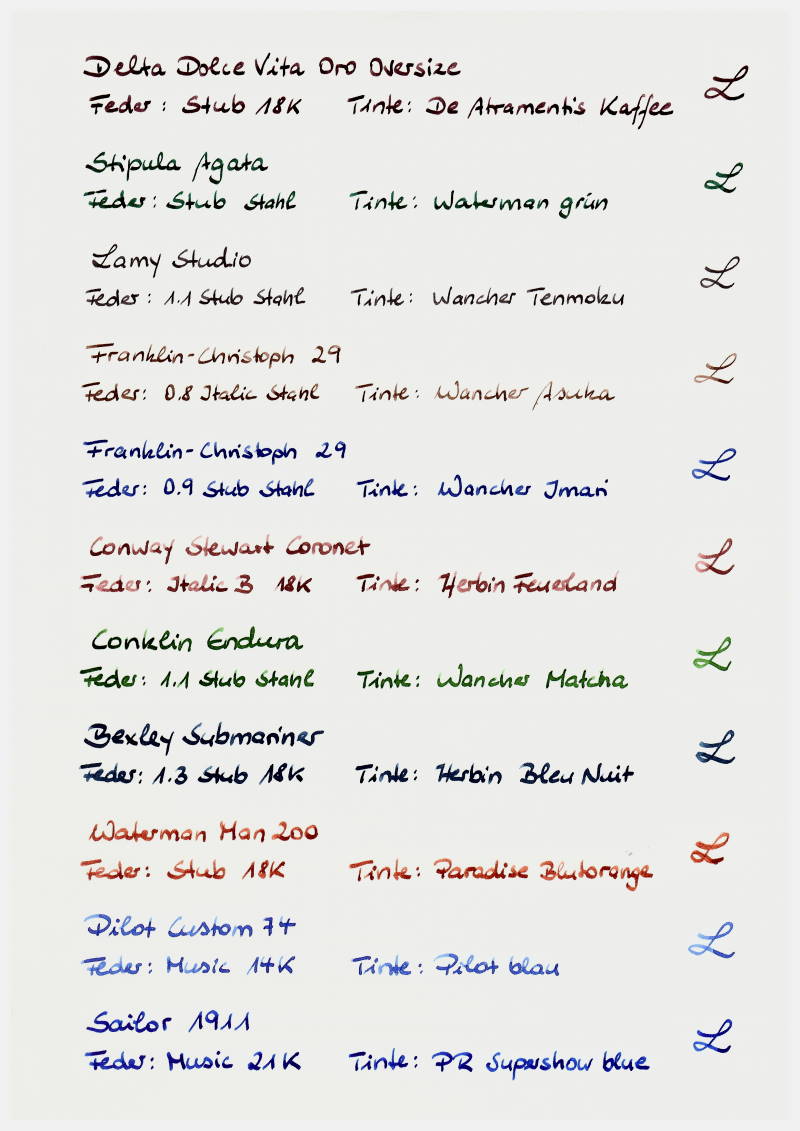 Delta Dolce Vita Oro Oversize
Feder: Stub 18K Tinte: De Atramentis Kaffee L
Stipula Agata
Feder: Stub Stahl Tinte: Waterman grün L
Lamy Studio
Feder: 1.1 Stub Stahl Tinte: Wancher Tenmoku L
Franklin-Christoph 29
Feder: 0.8 Italic Stahl Tinte: Wancher Asuka L
Franklin-Christoph 29
Feder: 0.9 Stub Stahl Tinte: Wancher Imari L
Conway Stewart Coronet
Feder: Italic B 18K Tinte: Herbin Feuerland L
Conklin Endura
Feder: 1.1 Stub Stahl Tinte: Wancher Matcha L
Bexley Submariner
Feder: 1.3 Stub 18K Tinte: Herbin Bleu Nuit L
Waterman Man 200
Feder: Stub 18K Tinte: Paradise Blutorange L
Pilot Custom 74
Feder: Music 14K Tinte: Pilot blau L
Sailor 1911
Feder: Music 21K Tinte: PR Supershow blue L